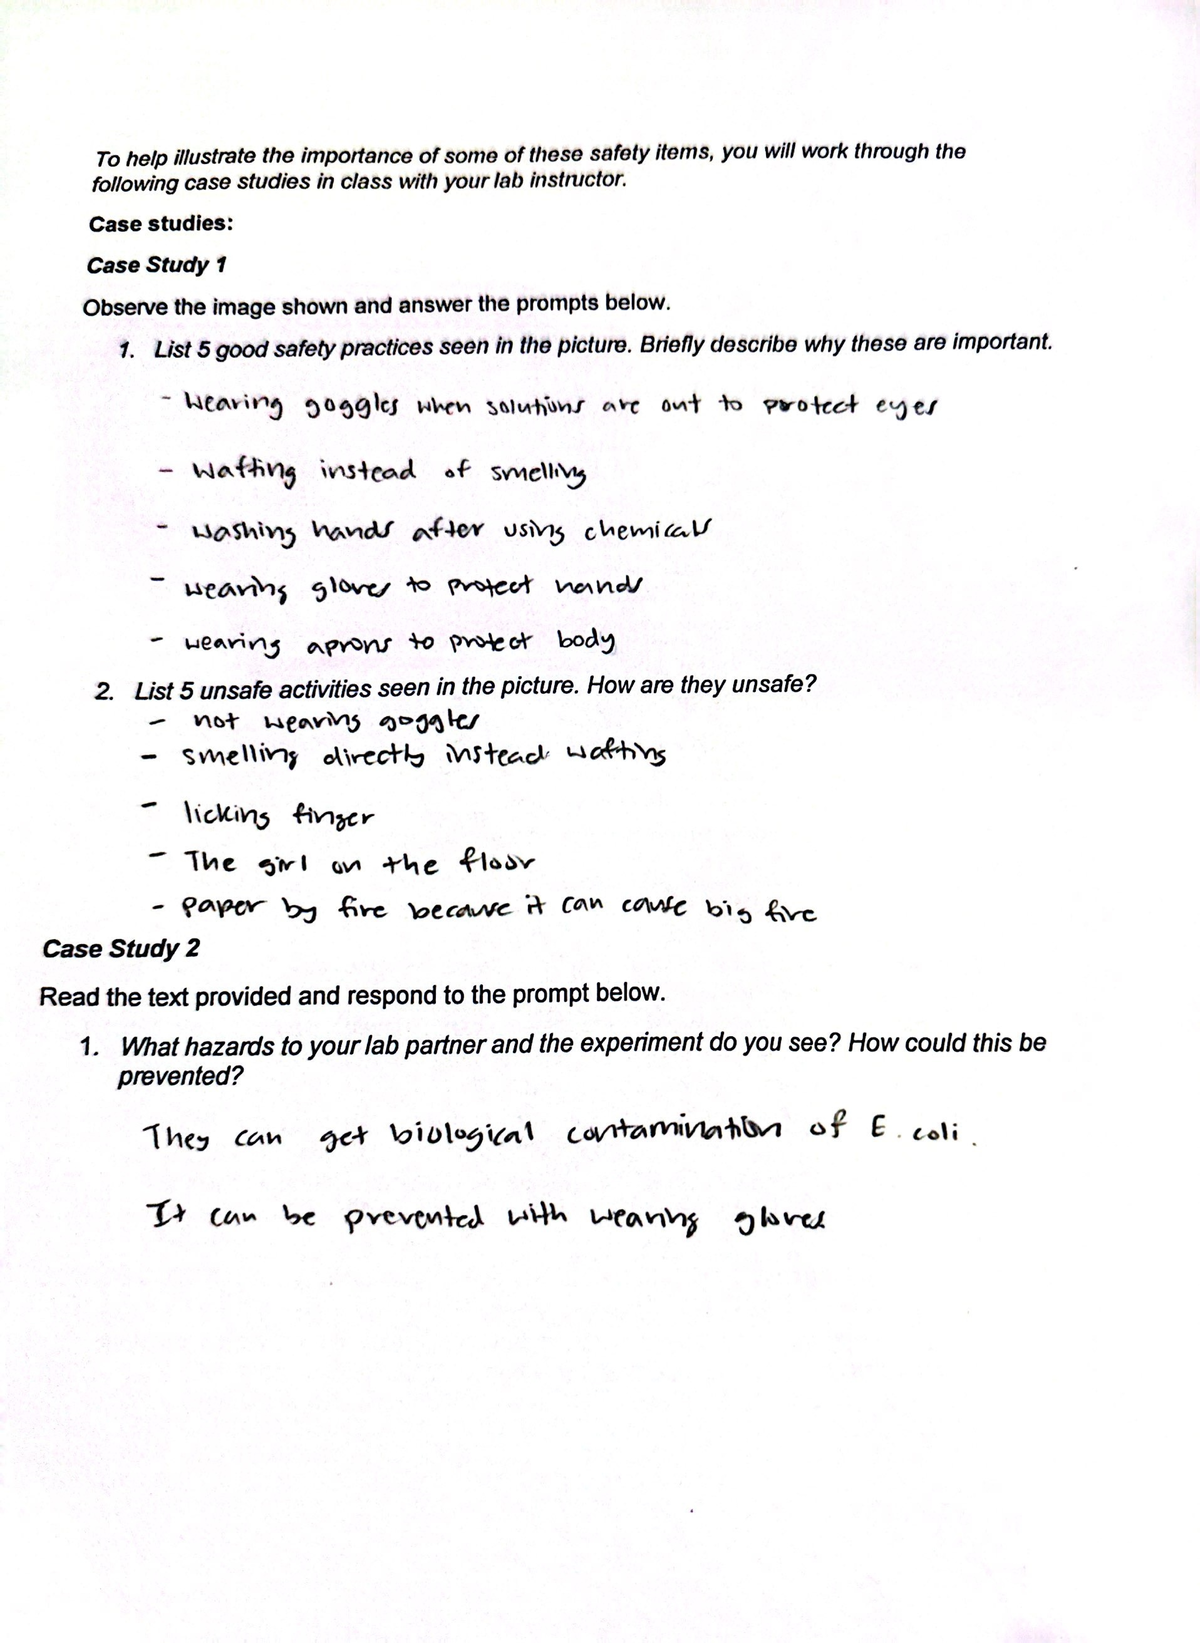 To help illustrate the importance of some of these safety items, you will work through the
following case studies in class with your lab instructor.
Case studies:
Case Study 1
Observe the image shown and answer the prompts below.
1. List 5 good safety practices seen in the picture. Briefly describe why these are important.
- Wearing goggles when solutions are out to protect eyes
- Wafting instead of smelling
- Washing hands after using chemicals
- wearing gloves to protect hands
- wearing aprons to protect body
2. List 5 unsafe activities seen in the picture. How are they unsafe?
- not wearing goggles
- smelling directly instead wafting
- licking finger
- The girl on the floor
- paper by fire because it can cause big fire
Case Study 2
Read the text provided and respond to the prompt below.
1. What hazards to your lab partner and the experiment do you see? How could this be
prevented?
They can get biological contamination of E. coli.
It can be prevented with wearing gloves